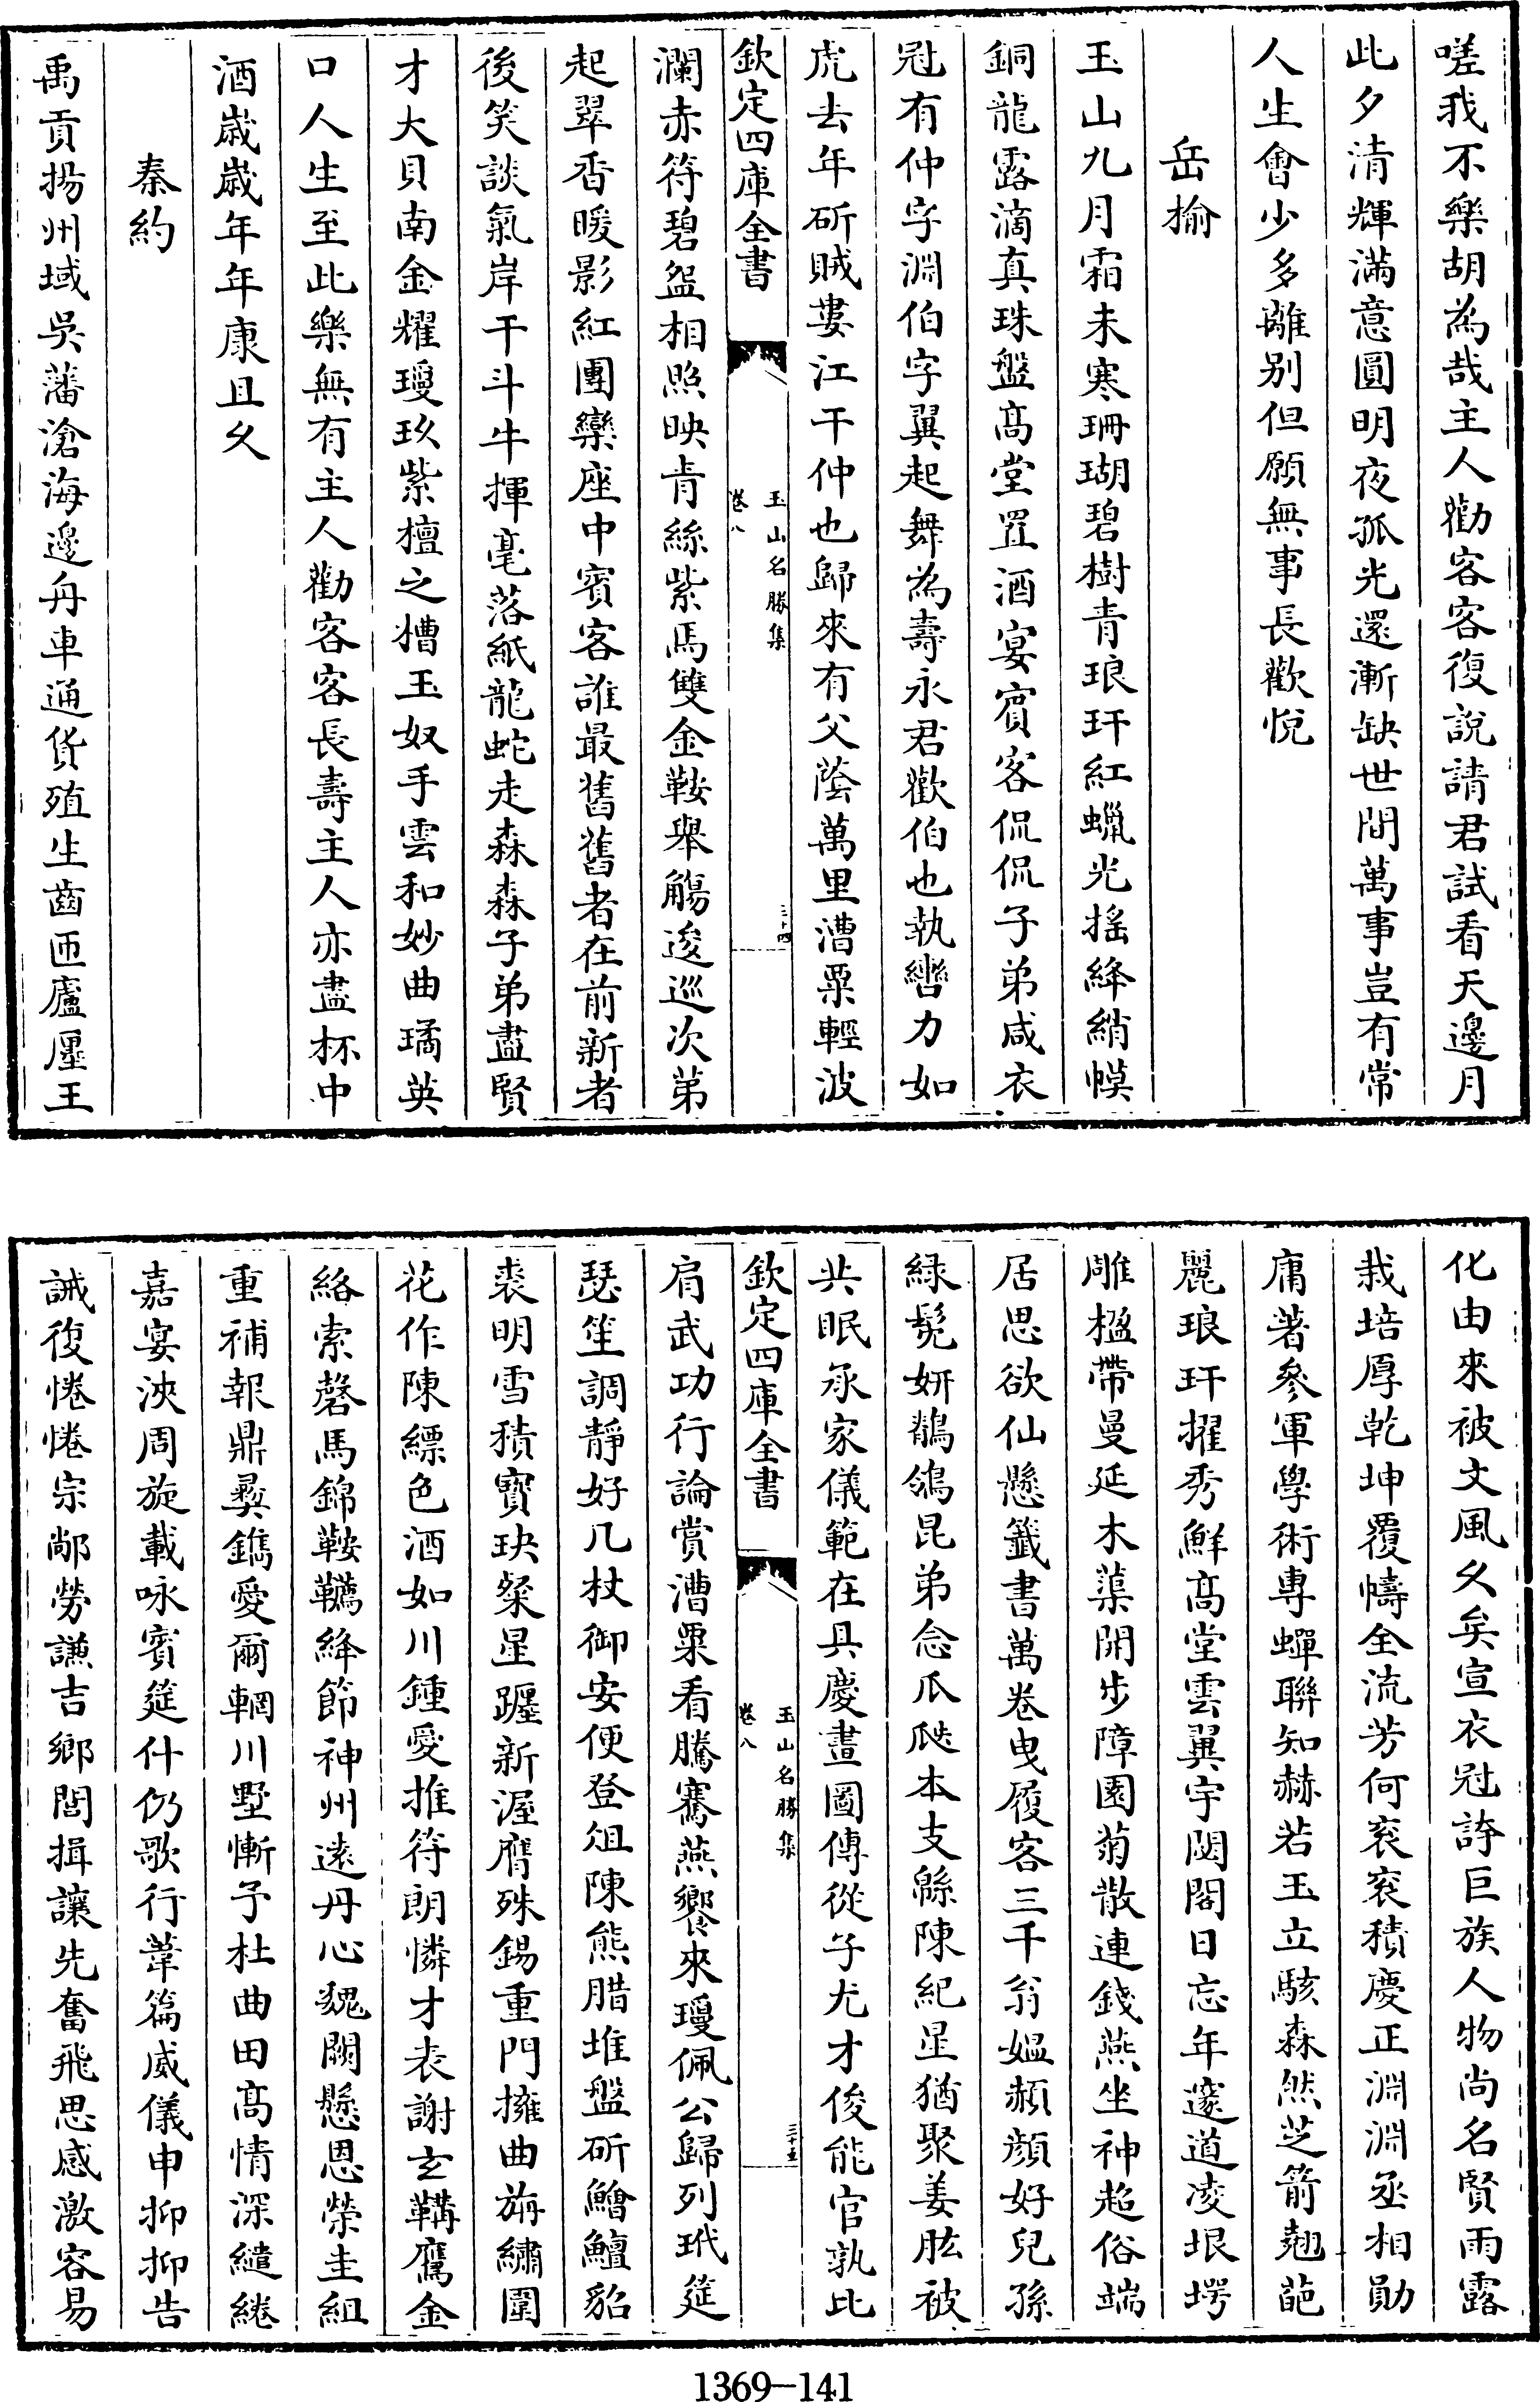 嗟我不樂胡為哉主人勸客客復說請君試看天邊月
此夕清輝滿意圓明夜孤光還漸缺世間萬事豈有常
人生會少多離别但願無事長歡悅
岳榆
玉山九月霜未寒珊瑚碧樹青琅玕紅蠟光搖絳綃幙
銅龍露滴真珠盤髙堂置酒宴賓客侃侃子弟咸衣
冠有仲字淵伯字翼起舞為壽永君歡伯也執轡力如
虎去年斫賊婁江干仲也歸來有父蔭萬里漕粟輕波
欽定四庫全書
玉山名勝集
卷八
三十四
瀾赤符碧盌相照映青絲紫馬雙金鞍舉觴逡巡次第
起翠香暖影紅團欒座中賓客誰最舊舊者在前新者
後笑談氣岸干斗牛揮毫落紙龍蛇走森森子弟盡賢
才大貝南金耀瓊玖紫檀之槽玉奴手雲和妙曲璚英
口人生至此樂無有主人勸客客長壽主人亦盡杯中
酒歲歲年年康且久
秦約
禹貢揚州域吳藩滄海邊舟車通貨殖生齒匝廬廛王
化由來被文風久矣宣衣冠誇巨族人物尚名賢雨露
栽培厚乾坤覆幬全流芳何衮衮積慶正淵淵丞相勛
庸著參軍學術專蟬聯知赫若玉立駭森然芝箭翹葩
麗琅玕擢秀鮮髙堂雲翼宇閟閣日忘年邃道凌垠堮
雕楹帶曼延木蕖開步障園菊散連錢燕坐神超俗端
居思欲仙懸籤書萬卷曳履客三千翁媼頳顏好兒孫
緑髩妍鶺鴒昆弟念瓜瓞本支緜陳紀星猶聚姜肱被
共眠承家儀範在具慶畫圖傳從子尤才俊能官孰比
欽定四庫全書
玉山名勝集
卷八
三十五
肩武功行論賞漕粟看騰騫燕饗來瓊佩公歸列玳筵
瑟笙調靜好几杖御安便登俎陳熊腊堆盤斫鱠鱣貂
裘明雪積寳玦粲星躔新渥膺殊錫重門擁曲旃繡圍
花作陳縹色酒如川鍾愛推符朗憐才表謝玄鞲鷹金
絡索磬馬錦鞍韉絳節神州遠丹心魏闕懸恩榮圭組
重補報鼎彞鐫愛爾輞川墅慚予杜曲田髙情深繾綣
嘉宴浹周旋載咏賓筵什仍歌行葦篇威儀申抑抑告
誡復惓惓宗鄗勞謙吉鄉閭揖讓先奮飛思感激容易
1369-141